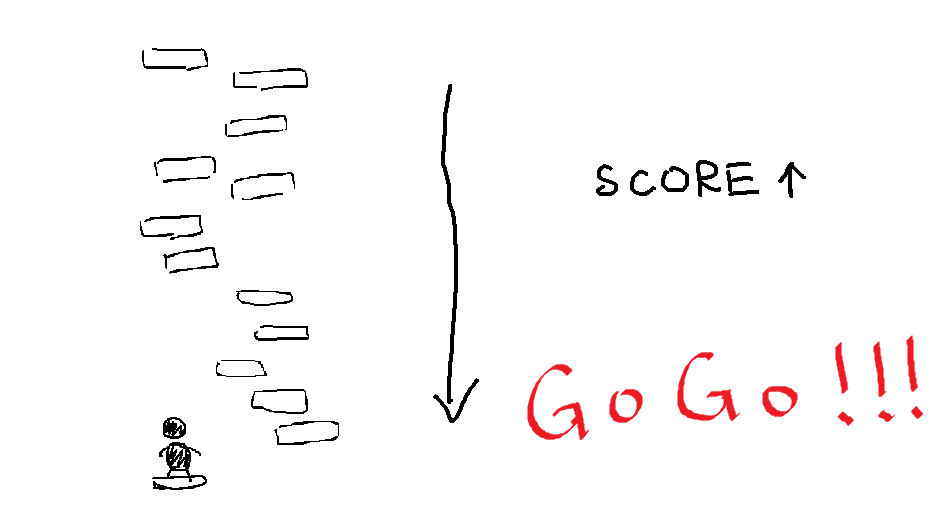 SCORE ↑
GoGo!!!